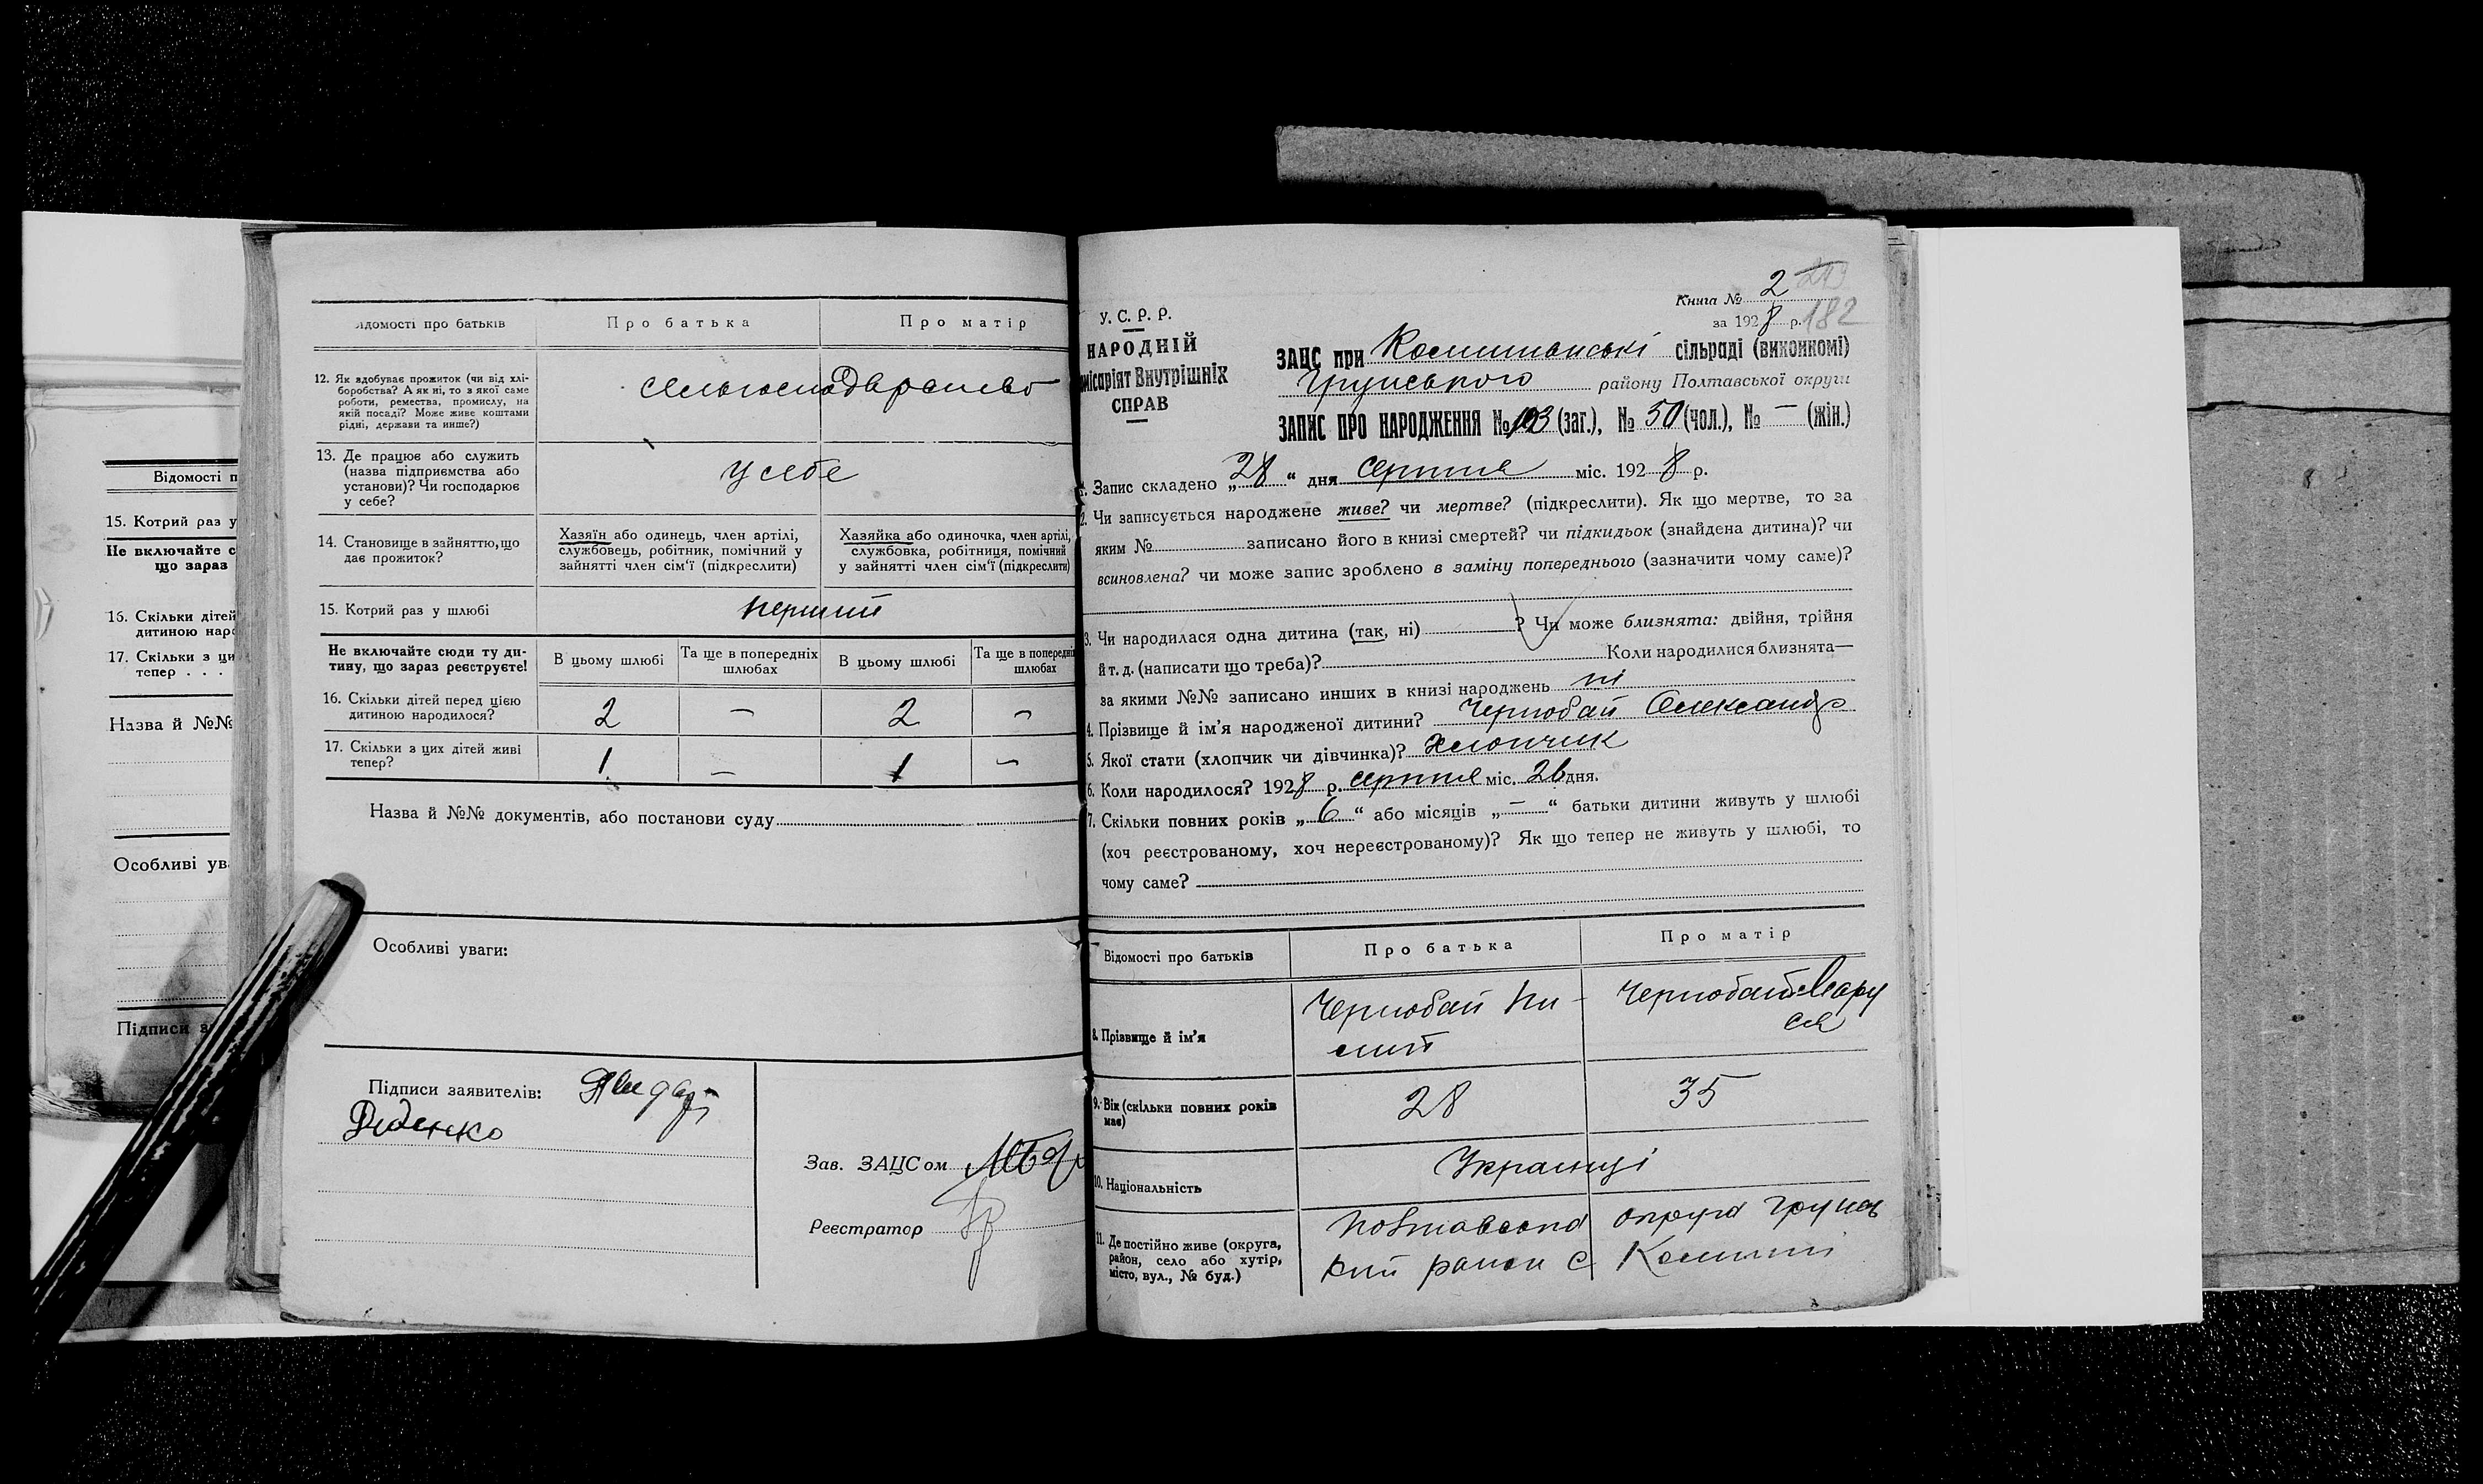 Відомості п
15. Котрий раз у
Не включайте с
що зараз
16. Скільки дітей
дитиною наро
17. Скільки з ци
тепер . . .
Назва й №№
Особливі ув
Підписи з
ідомості про батьків Про батька Про матір
12. Як здобуває прожиток (чи від хлі-
боробства? А як ні, то з якої саме
роботи, ремества, промислу, на
якій посаді? Може живе коштами
рідні, держави та инше?)
13. Де працює або служить
(назва підприємства або
установи)? Чи господарює
у себе?
у себе
14. Становище в зайняттю, що
дає прожиток?
Хазяїн або одинець, член артілі,
службовець, робітник, помічний у
зайнятті член сім'ї (підкреслити)
Хазяйка або одиночка, член артілі,
службовка, робітниця, помічний
у зайнятті член сім'ї (підкреслити)
15. Котрий раз у шлюбі перший
Не включайте сюди ту ди-
тину, що зараз реєструєте!
В цьому шлюбі Та ще в попередніх шлюбах В цьому шлюбі Та ще в попередні шлюбах
16. Скільки дітей перед цією
дитиною народилося? 2 — 2 —
17. Скільки з цих дітей живі
тепер? 1 — 1 —
Назва й №№ документів, або постанови суду
Особливі уваги:
Підписи заявителів:
Діденко
Зав. ЗАЦСом
Реєстратор
Книга № 2 249
за 1928 р. 182
У. С. Р. Р.
НАРОДНІЙ
місаріят Внутрішніх
СПРАВ
ЗАЦС при сільраді (виконкомі)
Грунського району Полтавської округи
ЗАПИС ПРО НАРОДЖЕННЯ № 103 (заг.), № 50 (чол.), № — (жін.)
1. Запис складено „28“ дня серпня міс. 1928 р.
2. Чи записується народжене живе? чи мертве? (підкреслити). Як що мертве, то за
яким № записано його в книзі смертей? чи підкидьок (знайдена дитина)? чи
всиновлена? чи може запис зроблено в заміну попереднього (зазначити чому саме)?
3. Чи народилася одна дитина (так, ні) ? Чи може близнята: двійня, трійня
й т. д. (написати що треба)? Коли народилися близнята—
за якими №№ записано инших в книзі народжень ні
4. Прізвище й ім'я народженої дитини? Чернобай Олександр
5. Якої стати (хлопчик чи дівчинка)? хлопчик
6. Коли народилося? 1928 р. серпня міс. 26 дня.
7. Скільки повних років „6“ або місяців „—“ батьки дитини живуть у шлюбі
(хоч реєстрованому, хоч нереєстрованому)? Як що тепер не живуть у шлюбі, то
чому саме?
Відомості про батьків Про батька Про матір
8. Прізвище й ім'я
Чернобай Пи-
лип
Чернобай Мару
ся
9. Вік (скільки повних років
має) 28 35
10. Національність Українці
11. Де постійно живе (округа,
район, село або хутір,
місто, вул., № буд.)
округа Грунсь
кий район с